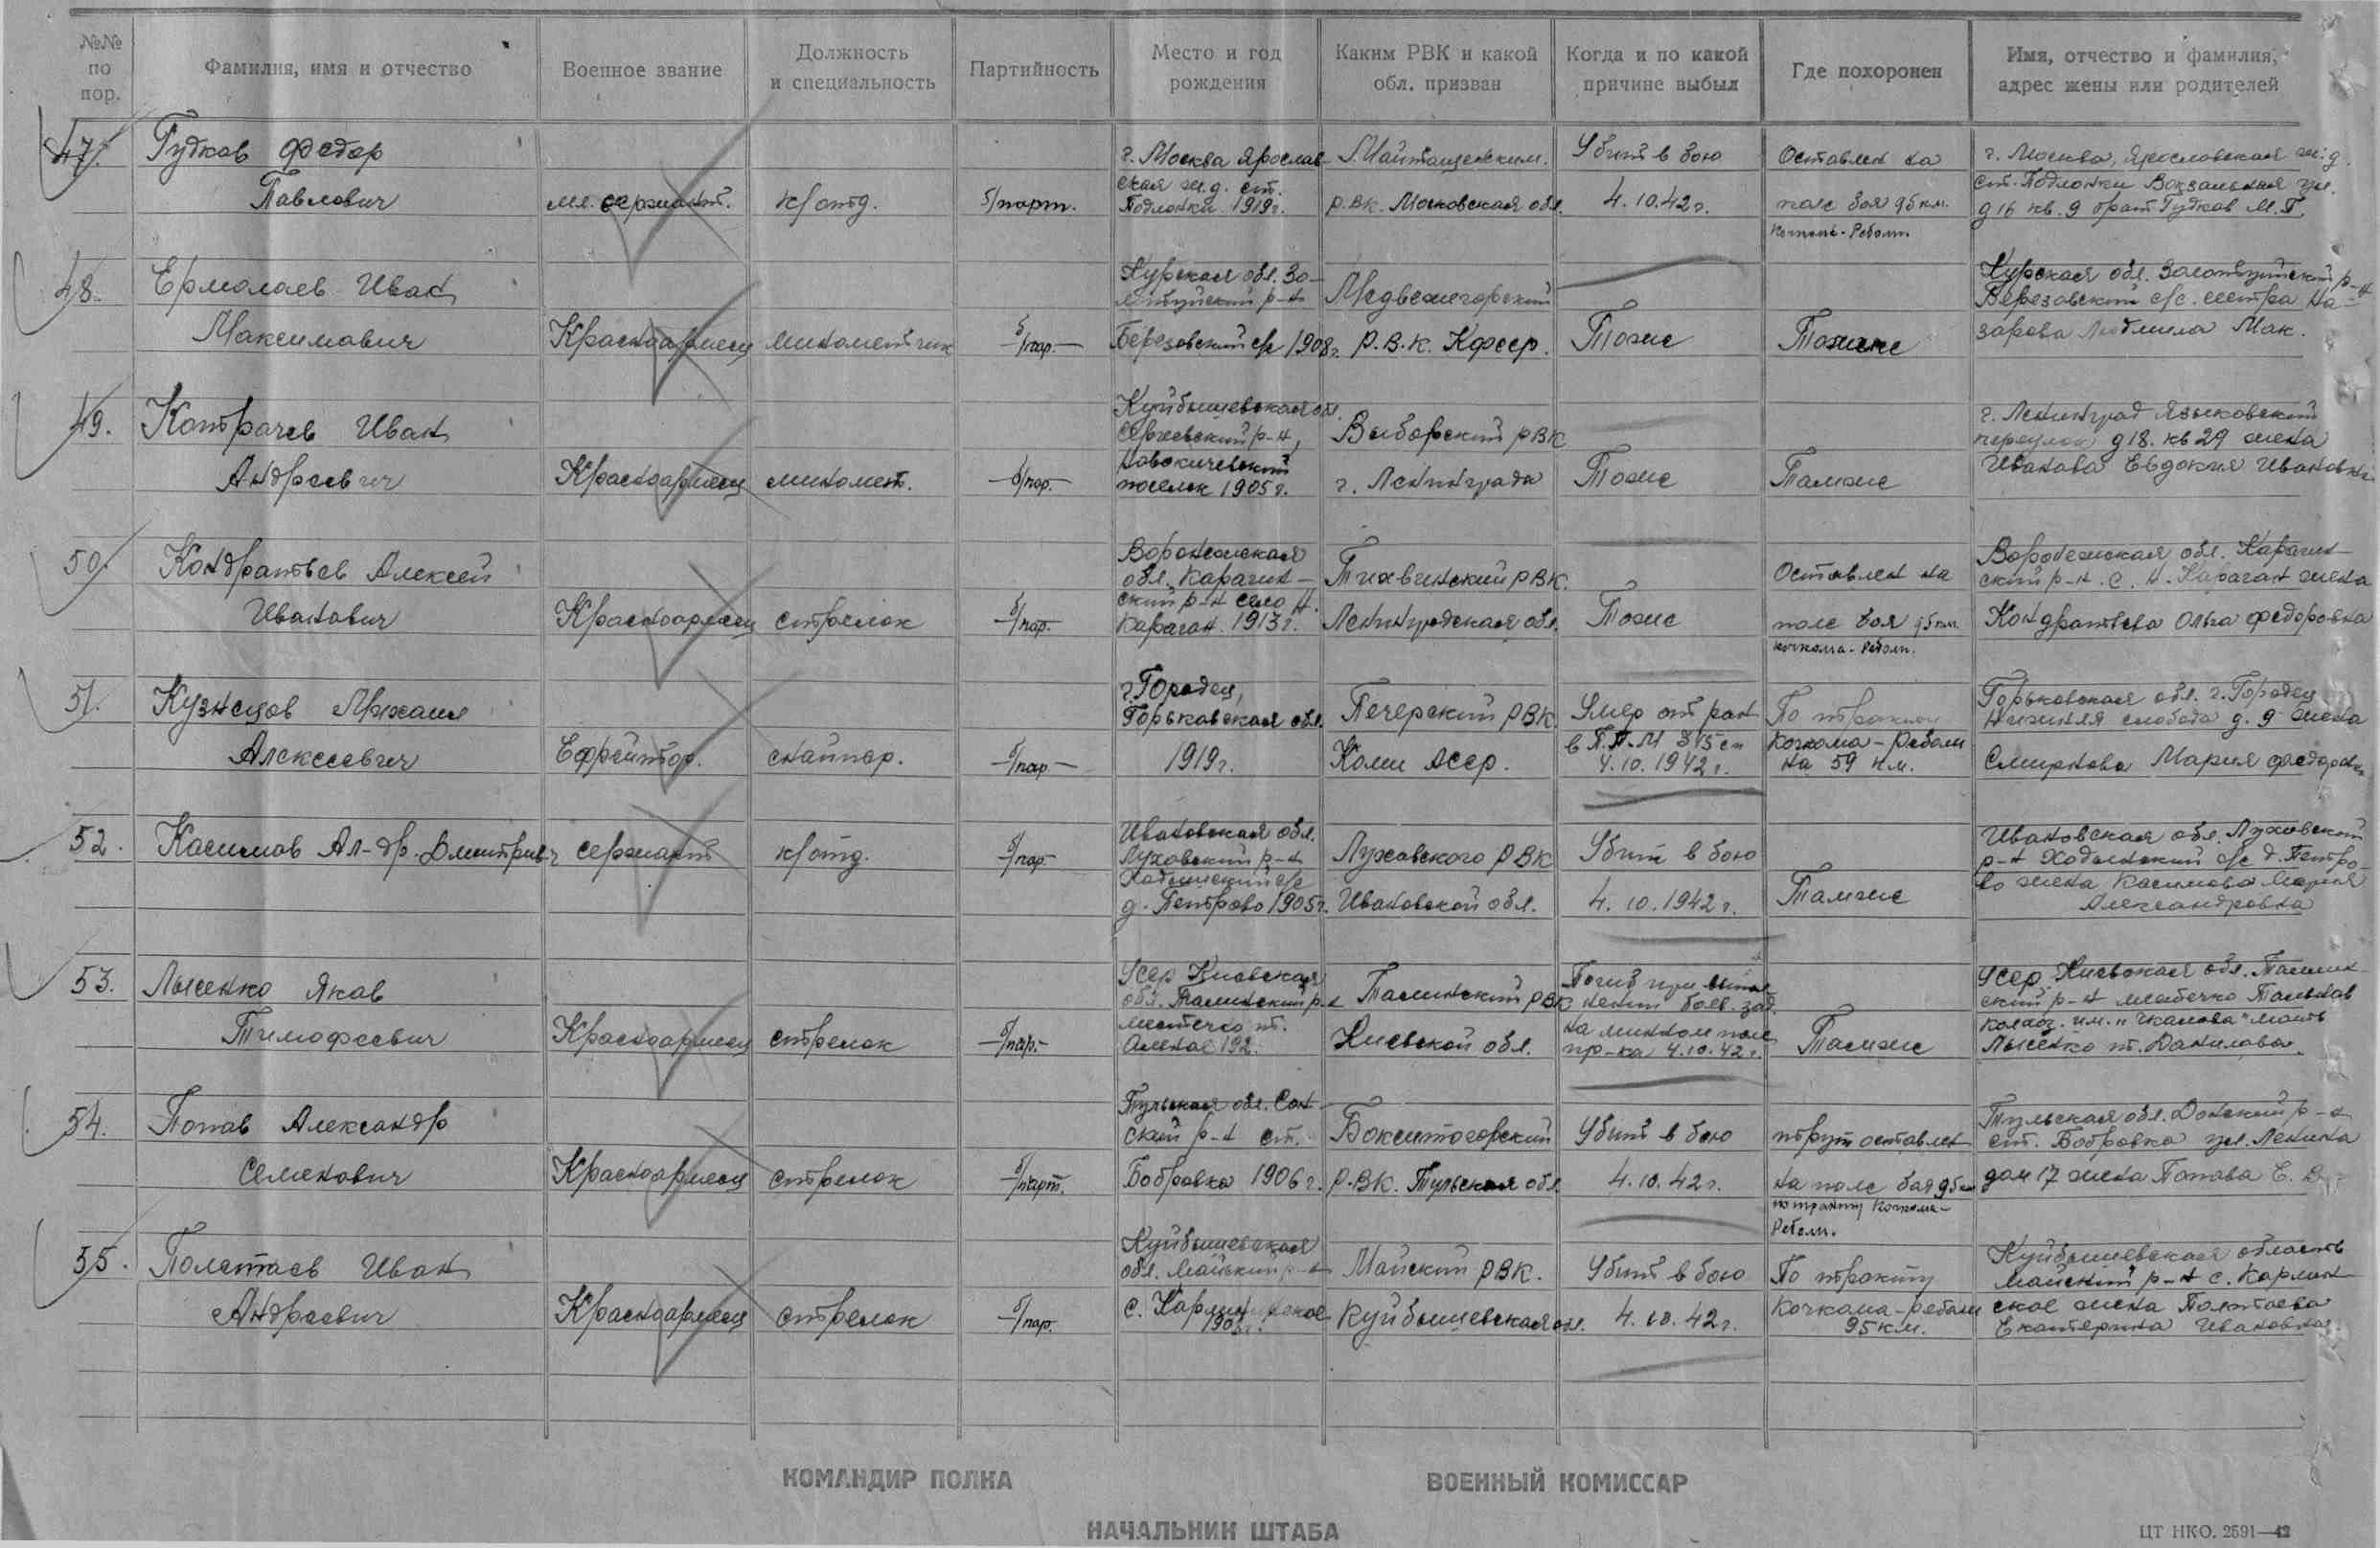 №№ по пор.
Фамилия, имя и отчество
Военное звание
Должность и специальность
Партийность
Место и год рождения
Каким РВК и какой обл. призван
Когда и по какой причине выбыл
Где похоронен
Имя, отчество и фамилия, адрес жены или родителей
47.
Гудков Федор
Павлович
мл. сержант.
к/отд.
б/парт.
г. Москва Ярослав-
ская ж.д. ст.
Подлонки 1919г.
Р.ВК. Московская обл.
Убит в бою
4.10.42г.
Оставлен на
поле боя 95 км.
г. Москва, Ярославская ж.д.
ст. Подлонки Вокзальная ул.
д 16 кв. 9 брат Гудков М.П.
48.
Ермолаев Иван
Максимович
Красноармеец
минометчик
б/пар.
Курская обл. Зо-
р-н
Березовский с/с 1908г.
Медвежегорский
Р.В.К. Кфсср.
Тоже
Курская обл. р-н
Березовский с/с. сестра На-
зарова Людмила Мак.
49.
Котрачев Иван
Андреевич
Красноармеец
миномет.
б/пар.
Куйбышевская обл.
Сергиевский р-н,
поселок 1905г.
Выборский РВК
г. Ленинграда
Тоже
Тамже
г. Ленинград Языковский
переулок д 18. кв 29 жена
Иванова Евдокия Ивановна
50.
Кондратьев Алексей
Иванович
Красноармеец
стрелок
б/пар.
Воронежская
обл. Карачан-
ский р-н село Н.
Карачан. 1913г.
Тихвинский РВК.
Ленинградская обл.
Тоже
Оставлен на
поле боя 95 км
Кочкома-Реболы.
Воронежская обл. Карачан-
ский р-н. с. Н. Карачан жена
Кондратьева Ольга Федоровна
51.
Кузнецов Михаил
Алексеевич
Ефрейтор.
снайпер.
б/пар.
г. Городец,
Горьковская обл.
1919г.
Печерский РВК.
Коми Асср.
Умер от ран
в П.П.М 315 сп
4.10.1942г.
По тракту
Кочкома-Реболы
на 59 км.
Горьковская обл. г. Городец
Нижняя слобода д. 9 жена
Смирнова Мария Федоровна
52.
Касимов Ал-др. Дмитриевич
сержант
к/отд.
б/пар.
Ивановская обл.
Луховский р-н
с/с
д. Петрово 1905г.
Луховского РВК
Ивановской обл.
Убит в бою
4.10.1942г.
Тамже
Ивановская обл. Луховский
р-н с/с д. Петро-
во жена Касимова Мария
Александровна
53.
Лысенко Яков
Тимофеевич
Красноармеец
стрелок
б/пар.
Усср Киевская
обл. р-н
местечко
192
РВК
Киевской обл.
Погиб при выпол-
нении боев. зад.
на минном поле
пр-ка 4.10.42г.
Тамже
Усср. Киевская обл.
ский р-н местечко
колхоз. им. "Чкалова" мать
Лысенко Данилова.
54.
Попов Александр
Семенович
Красноармеец
стрелок
б/парт.
Тульская обл.
ский р-н ст.
Бобровка 1906г.
Бокситогорский
Р.ВК. Тульская обл.
Убит в бою
4.10.42г.
труп оставлен
на поле боя 95 км
по тракту Кочкома-
Реболы.
Тульская обл. Донский р-н
ст. Бобровка ул. Ленина
дом 17 жена Попова Е. Д.
55.
Полетаев Иван
Андреевич
Красноармеец
стрелок
б/пар.
Куйбышевская
обл. Майский р-н
Майский РВК.
Куйбышевская обл.
Убит в бою
4.10.42г.
По тракту
Кочкома-Реболы
95 км.
Куйбышевская область
Майский р-н с. Карлин-
ское жена Полетаева
Екатерина Ивановна
КОМАНДИР ПОЛКА
ВОЕННЫЙ КОМИССАР
НАЧАЛЬНИК ШТАБА
ЦТ НКО. 2591—42